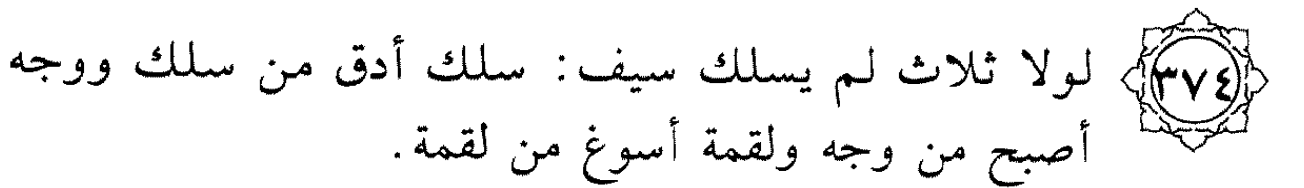 ٣٧٤ لولا ثلاث لم يسلك سيف: سلك أدق من سلك ووجه
أصبح من وجه ولقمة أسوغ من لقمة.